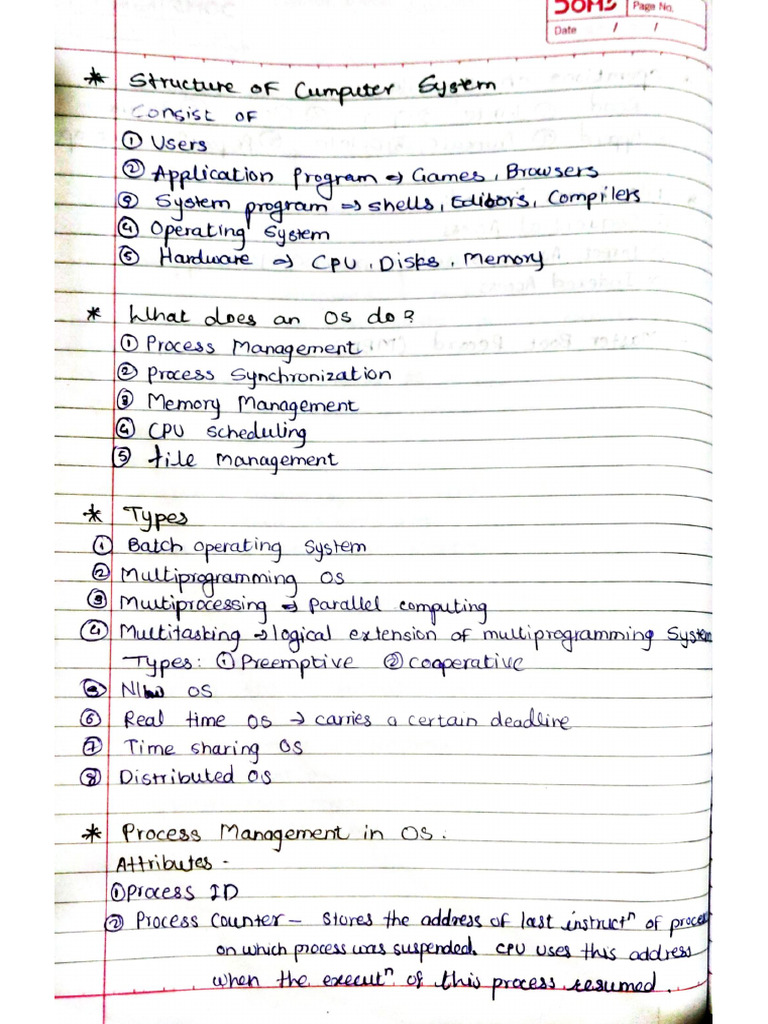 Page No.
Date / /
* Structure of Cumputer System
Consist of
① Users
② Application Program → Games, Browsers
③ System program → shells, Editors, Compilers
④ Operating System
⑤ Hardware → CPU, Disks, Memory
* What does an OS do?
① Process Management
② Process Synchronization
③ Memory Management
④ CPU scheduling
⑤ file Management
* Types
① Batch operating System
② Multiprogramming OS
③ Multiprocessing → Parallel computing
④ Multitasking → logical extension of multiprogramming System
Types: ① Preemptive ② cooperative
⑤ N/w OS
⑥ Real time OS → carries a certain deadline
⑦ Time sharing OS
⑧ Distributed OS
* Process Management in OS.
Attributes -
① Process ID
② Process Counter - Stores the address of last instructⁿ of process
on which process was suspended. CPU uses this address
when the executⁿ of this process resumed.